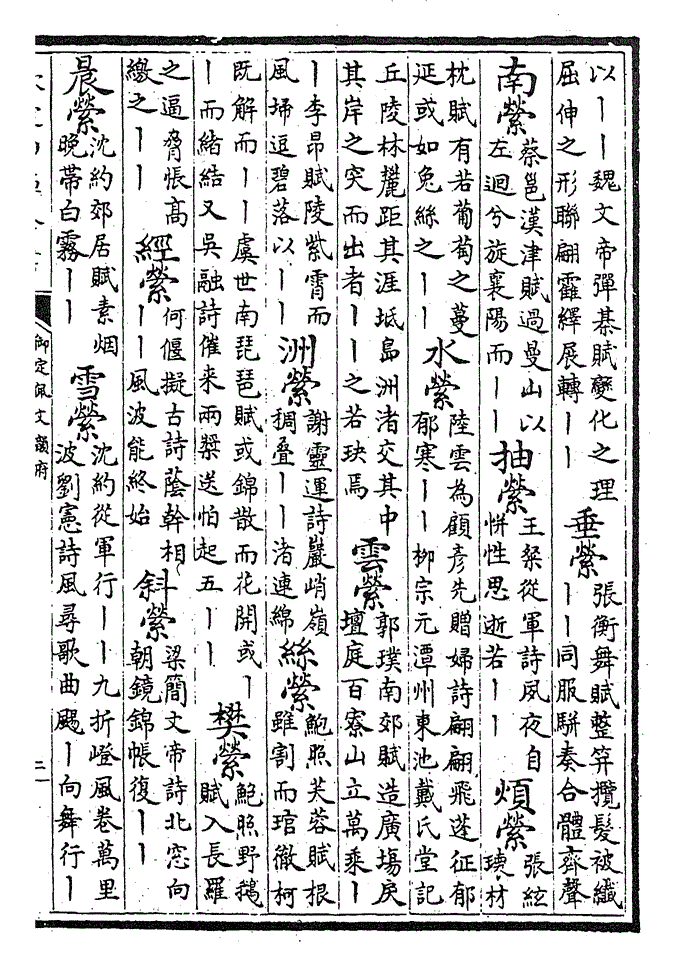 以丨丨魏文帝彈棊賦變化之理
屈伸之形聯翩霍繹展轉丨丨
垂縈
張衡舞賦整笄攬髮被纖
丨丨同服駢奏合體齊聲
南縈
蔡邕漢津賦過曼山以
左迴兮旋襄陽而丨丨
抽縈
王粲從軍詩夙夜自
恲性思逝若丨丨
煩縈
張絃
瓌材
枕賦有若葡萄之蔓
延或如兔絲之丨丨
水縈
陸雲為顧彥先贈婦詩翩翩飛蓬征郁
郁寒丨丨柳宗元潭州東池戴氏堂記
丘陵林麓距其涯坻島洲渚交其中
其岸之突而出者丨丨之若玦焉
雲縈
郭璞南郊賦造廣塲戾
壇庭百寮山立萬乘丨
丨李昂賦陵紫霄而
風埽逗碧落以丨丨
洲縈
謝靈運詩巖峭嶺
稠叠丨丨渚連綿
絲縈
鮑照芙蓉賦根
雖割而琯徹柯
既解而丨丨虞世南琵琶賦或錦散而花開或丨
丨而緒結又吳融詩催来兩槳送怕起五丨丨
樊縈
鮑照野鵝
賦入長羅
之逼脅悵高
繳之丨丨
經縈
何偃擬古詩蔭幹相
丨丨風波能終始
斜縈
梁簡文帝詩北窓向
朝鏡錦帳復丨丨
晨縈
沈約郊居賦素烟
晚帶白霧丨丨
雪縈
沈約從軍行丨丨九折嶝風卷萬里
波劉憲詩風尋歌曲颺丨向舞行丨
御定佩文韻府